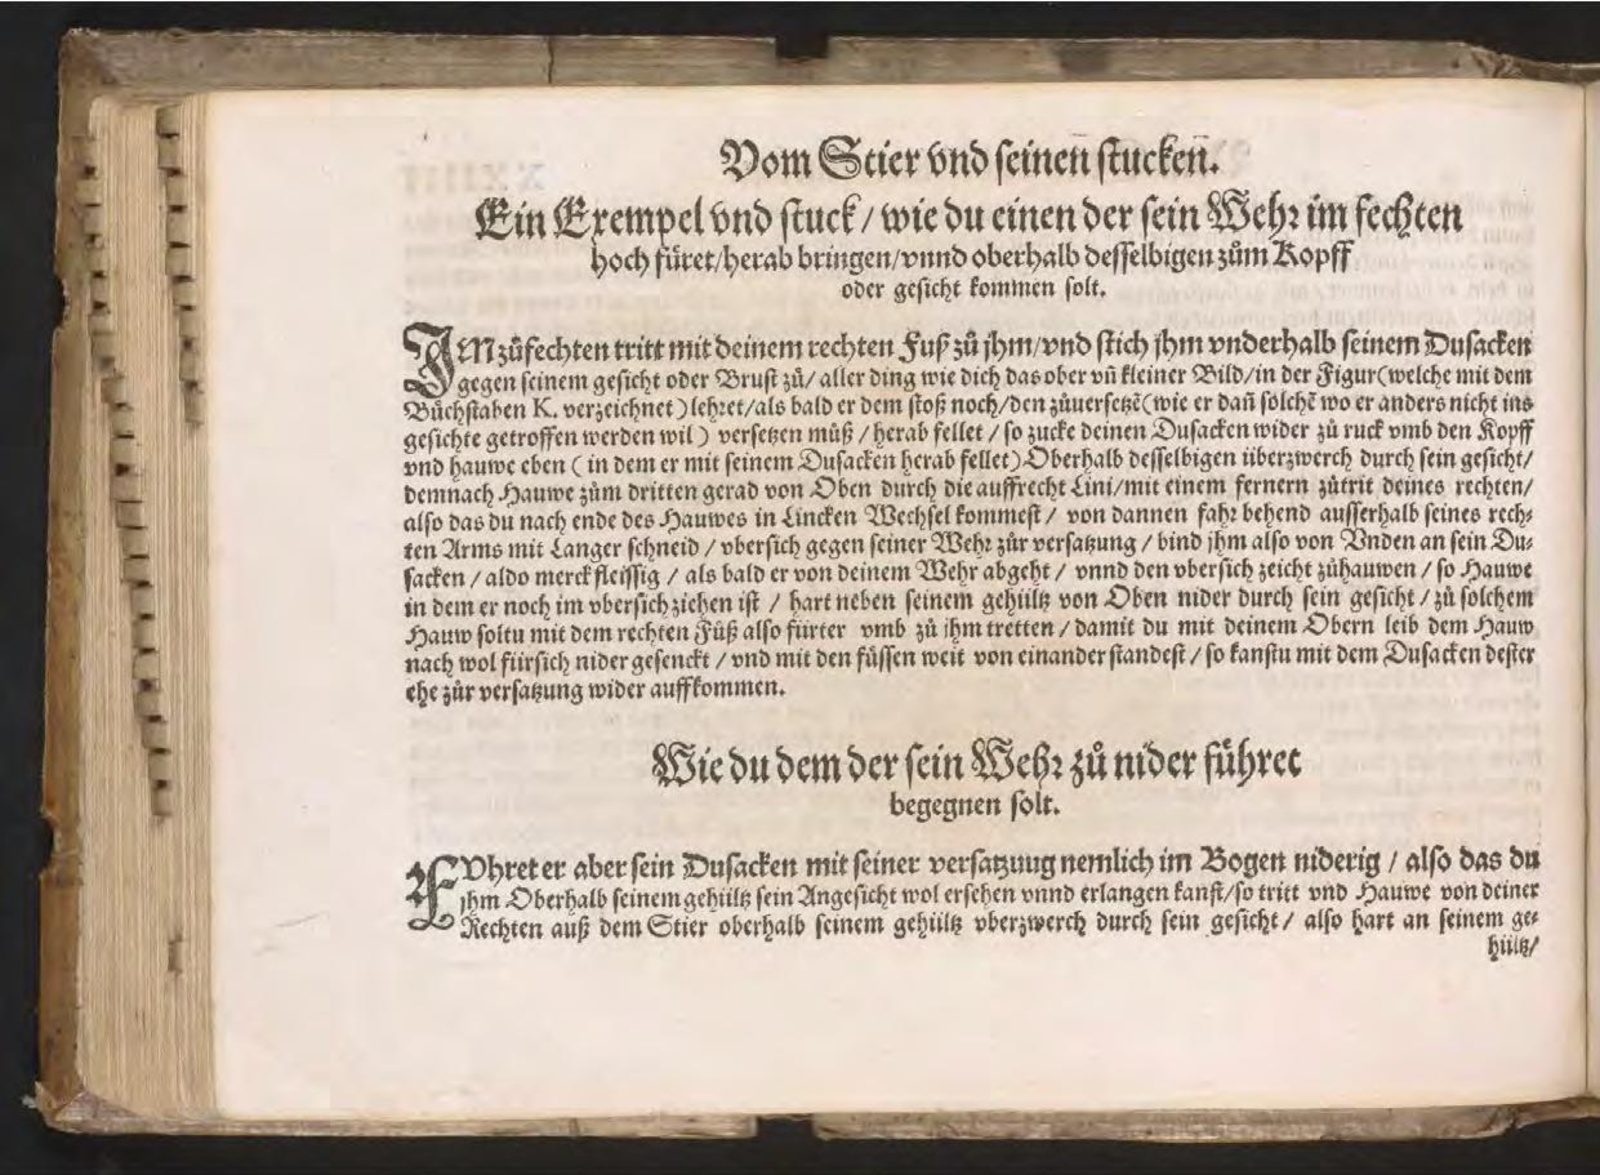 Vom Stier vnd seinen̄ stucken̄.
Ein Exempel vnd stuck / wie du einen der sein Wehr im fechten
hoch füret/herab bringen/vnnd oberhalb desselbigen zům Kopff
oder gesicht kommen solt.
IM zůfechten tritt mit deinem rechten Fuß zů jhm/vnd stich jhm vnderhalb seinem Dusacken
gegen seinem gesicht oder Brust zů/ aller ding wie dich das ober vñ kleiner Bild/in der Figur(welche mit dem
Bůchstaben K. verzeichnet)lehret/als bald er dem stoß noch/den zůuersetzē(wie er dañ solchē wo er anders nicht ins
gesichte getroffen werden wil) versetzen můß / herab fellet / so zucke deinen Dusacken wider zů ruck vmb den Kopff
vnd hauwe eben ( in dem er mit seinem Dusacken herab fellet)Oberhalb desselbigen überzwerch durch sein gesicht/
demnach Hauwe zům dritten gerad von Oben durch die auffrecht Lini/mit einem fernern zůtrit deines rechten/
also das du nach ende des Hauwes in Lincken Wechsel kommest / von dannen fahr behend ausserhalb seines rech⸗
ten Arms mit Langer schneid / vbersich gegen seiner Wehr zůr versatzung / bind jhm also von Vnden an sein Du⸗
sacken / aldo merck fleissig / als bald er von deinem Wehr abgeht / vnnd den vbersich zeicht zůhauwen / so Hauwe
in dem er noch im vbersich ziehen ist / hart neben seinem gehültz von Oben nider durch sein gesicht / zů solchem
Hauw soltu mit dem rechten Fůß also fürter vmb zů jhm tretten / damit du mit deinem Obern leib dem Hauw
nach wol fürsich nider gesenckt / vnd mit den füssen weit von einander standest / so kanstu mit dem Dusacken dester
ehe zůr versatzung wider auffkommen.
Wie du dem der sein Wehr zů nider führet
begegnen solt.
FVhret er aber sein Dusacken mit seiner versatzuug nemlich im Bogen niderig / also das du
jhm Oberhalb seinem gehültz sein Angesicht wol ersehen vnnd erlangen kanst/so tritt vnd Hauwe von deiner
Rechten auß dem Stier oberhalb seinem gehültz vberzwerch durch sein gesicht / also hart an seinem ge⸗
hültz/